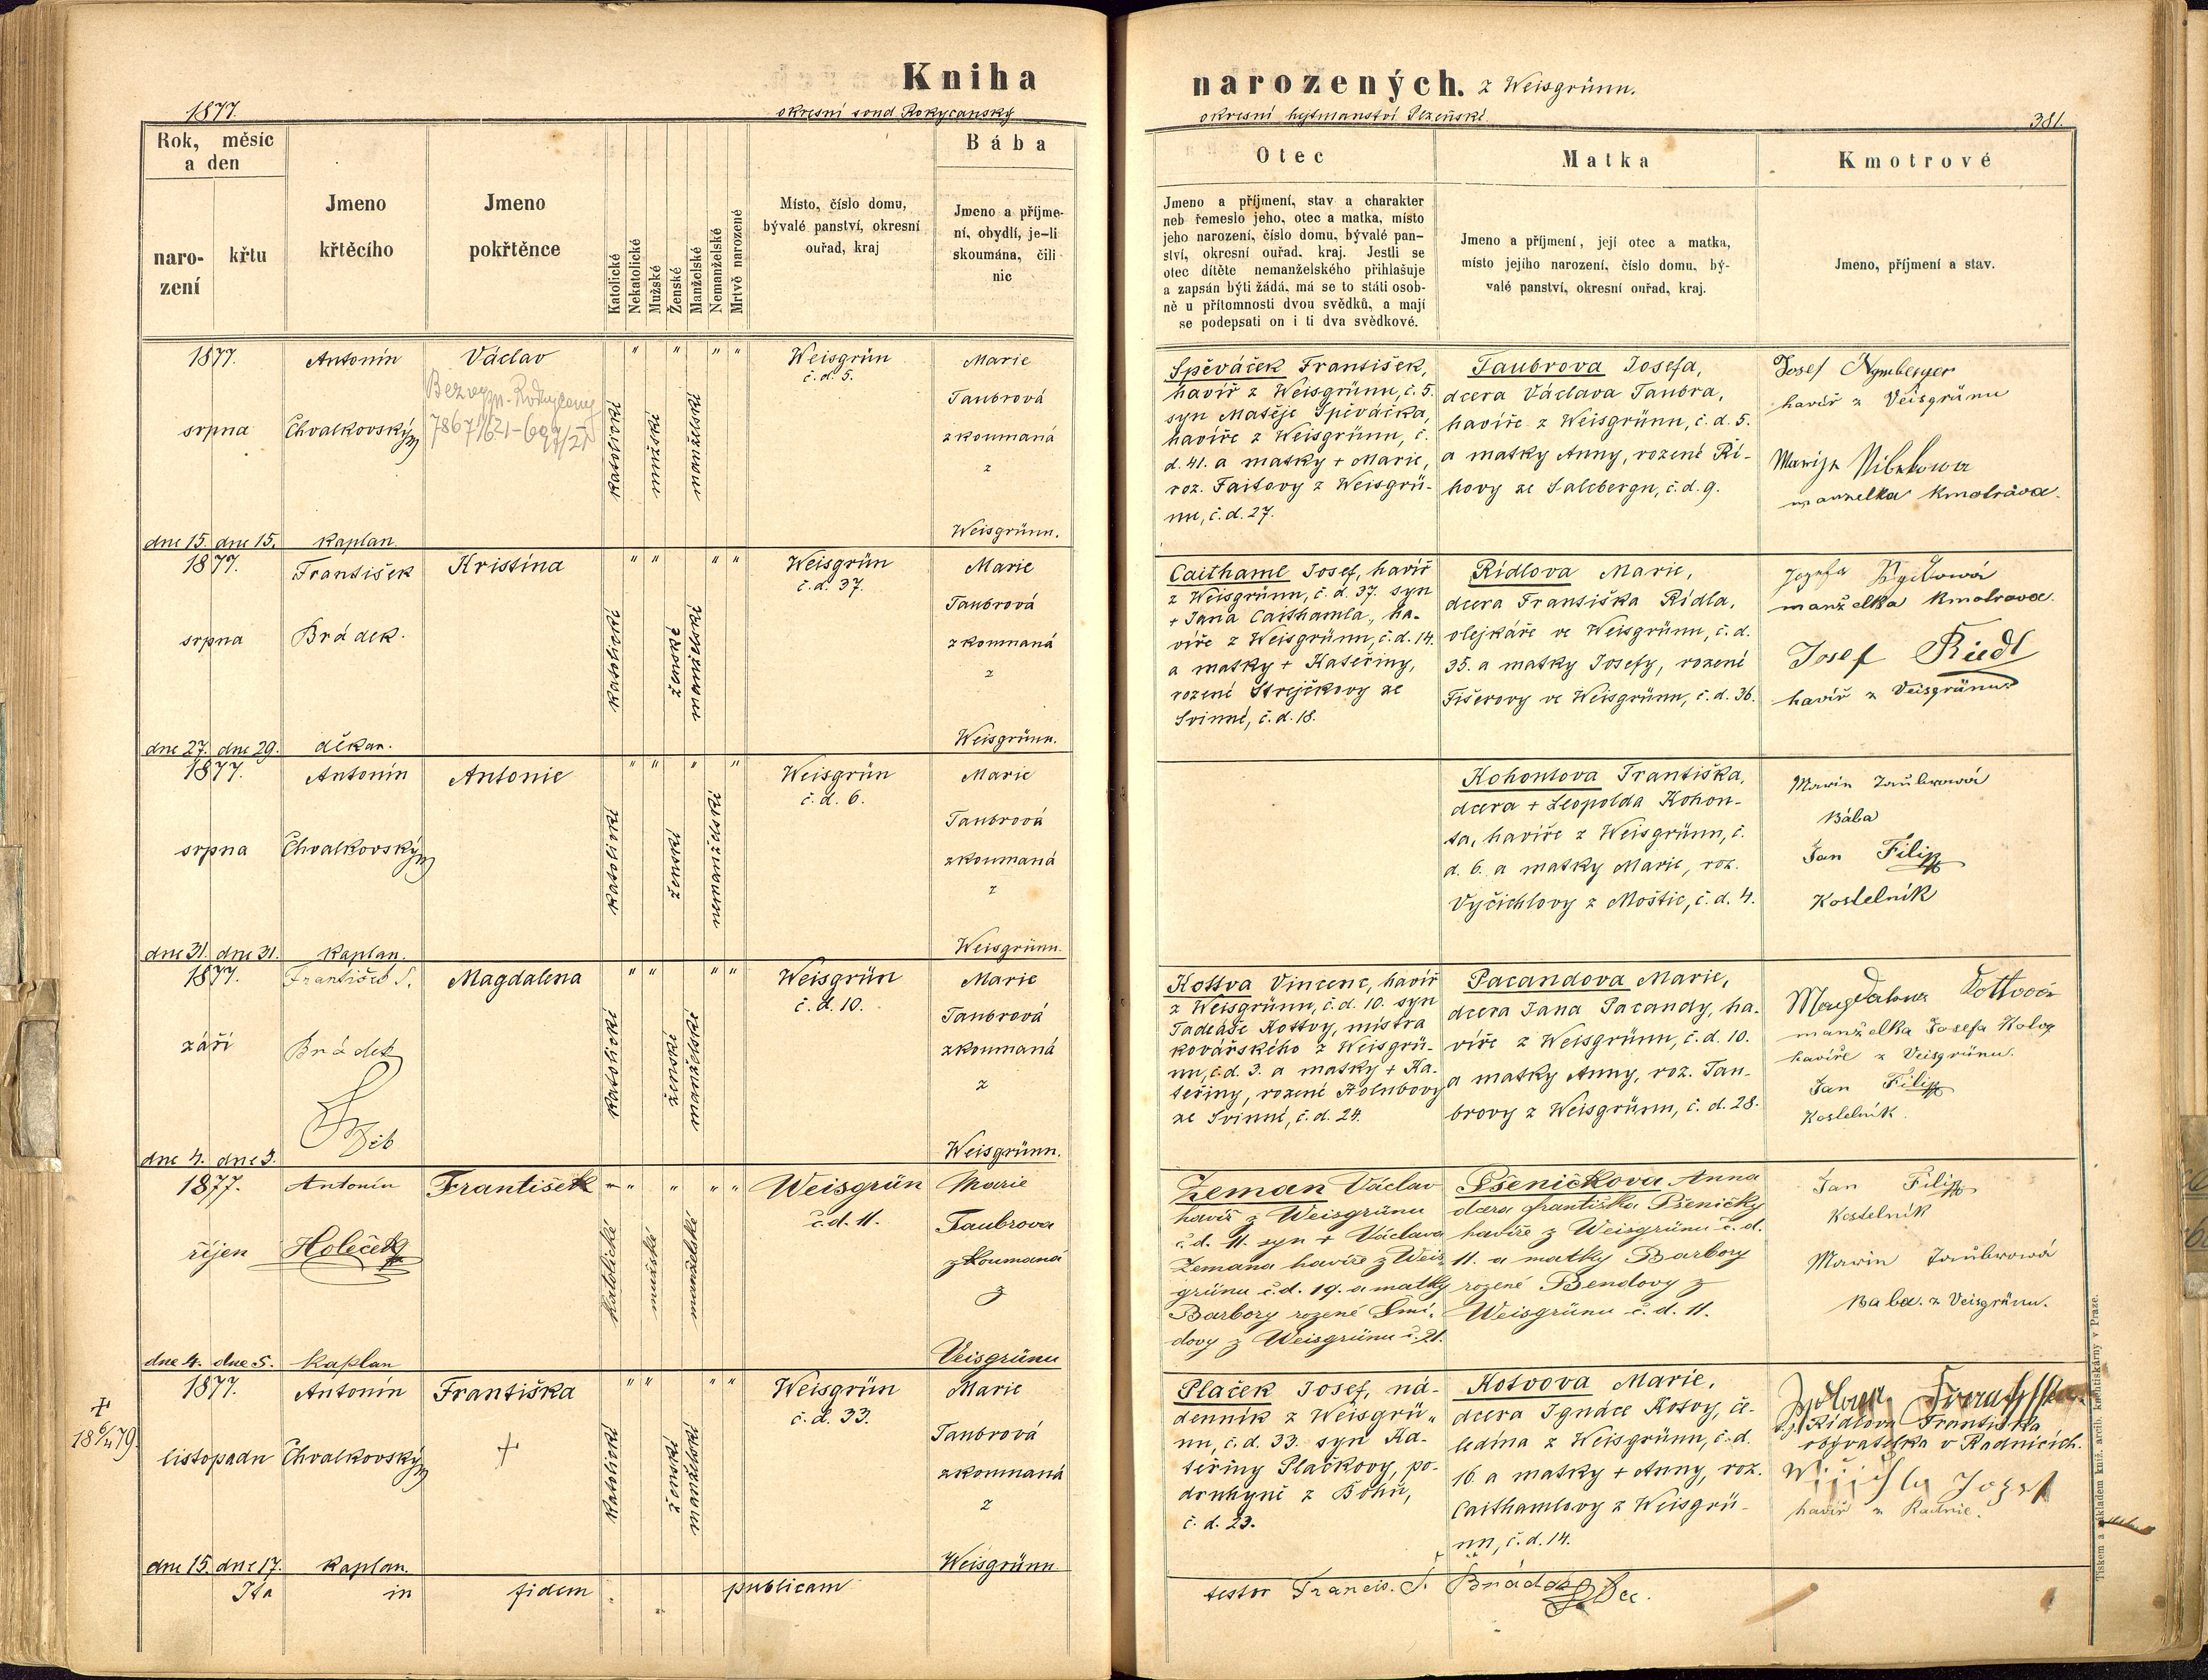 Kniha
1877.
okresní soud Rokycanský
Rok, měsíc
a den
naro-
zení
křtu
Jmeno
křtěcího
Jmeno
pokřtěnce
Katolické
Nekatolické
Mužské
Ženské
Manželské
Nemanželské
Mrtvě narozené
Místo, číslo domu,
bývalé panství, okresní
ouřad, kraj
Bába
Jmeno a příjme-
ní, obydlí, je-li
skoumána, čili
nic
1877.
srpna
dne 15. dne 15.
Antonín
Chvalkovský
kaplan.
Václav
katolické
mužské
manželské
Weisgrün
č. d. 5.
Marie
Taubrová
zkoumaná
z
Weisgrünu.
1877.
srpna
dne 27. dne 29.
František
Brádek.
děkan.
Kristina
katolické
ženské
manželské
Weisgrün
č. d. 37.
Marie
Taubrová
zkoumaná
z
Weisgrünu.
1877.
srpna
dne 31. dne 31.
Antonín
Chvalkovský
kaplan.
Antonie
katolické
ženské
nemanželské
Weisgrün
č. d. 6.
Marie
Taubrová
zkoumaná
z
Weisgrünu.
1877.
září
dne 4. dne 5.
František S.
Brádek
Magdalena
katolické
ženské
manželské
Weisgrün
č. d. 10.
Marie
Taubrová
zkoumaná
z
Weisgrünu.
1877.
říjen
dne 4. dne 5.
Antonín
Holeček
kaplan
František
katolické
mužské
manželské
Weisgrün
č. d. 11.
Marie
Taubrova
zkoumaná
z
Veisgrünu
+
18 6/4 79.
1877.
listopadu
dne 15. dne 17.
Antonín
Chvalkovský
kaplan.
Františka
+
katolické
ženské
manželské
Weisgrün
č. d. 33.
Marie
Taubrová
zkoumaná
z
Weisgrünu
Ita in fidem publicam
narozených. z Weisgrünu.
okresní hejtmanství Plzeňské
381.
Otec
Jmeno a příjmení, stav a charakter
neb řemeslo jeho, otec a matka, místo
jeho narození, číslo domu, bývalé pan-
ství, okresní ouřad, kraj. Jestli se
otec dítěte nemanželského přihlašuje
a zapsán býti žádá, má se to státi osob-
ně u přítomnosti dvou svědků, a mají
se podepsati on i ti dva svědkové.
Matka
Jmeno a příjmení, její otec a matka,
místo jejího narození, číslo domu, bý-
valé panství, okresní ouřad, kraj.
Kmotrové
Jmeno, příjmení a stav.
Spěváček František,
havíř z Weisgrünu, č. 5.
syn Matěje Spěváčka,
havíře z Weisgrünu, č.
d. 41. a matky + Marie,
roz. Faitovy z Weisgrü-
nu, č. d. 27.
Taubrova Josefa,
dcera Václava Taubra,
havíře z Weisgrünu, č. d. 5.
a matky Anny, rozené Ři-
hovy ze Salcbergu, č. d. 9.
Josef
havíř z Veisgrünu
manželka kmotrova.
Caithaml Josef, havíř
z Weisgrünu, č. d. 37. syn
+ Jana Caithamla, ha-
víře z Weisgrünu, č. d. 14.
a matky + Kateřiny,
rozené Strejčkovy ze
Svinné, č. d. 18.
Rídlova Marie,
dcera Františka Rídla,
olejkáře ve Weisgrünu, č. d.
35. a matky Josefy, rozené
Fišerovy ve Weisgrünu, č. d. 36.
manželka kmotrova.
Josef Riedl
havíř z Veisgrünu.
Kohoutova Františka,
dcera + Leopolda Kohou-
ta, havíře z Weisgrünu, č.
d. 6. a matky Marie, roz.
Vyčichlovy z Moštic, č. d. 4.
Marie Taubrowá
Bába
Jan Filip
Kostelník
Kottva Vincenc, havíř
z Weisgrünu, č. d. 10. syn
Tadeáše Kottvy, mistra
kovářského z Weisgrü-
nu, č. d. 3. a matky + Ka-
teřiny, rozené Holubovy
ze Svinné, č. d. 24.
Pacandova Marie,
dcera Jana Pacandy, ha-
víře z Weisgrünu, č. d. 10.
a matky Anny, roz. Tau-
brovy z Weisgrünu, č. d. 28.
Magdalena Kottvova
manželka Josefa
havíře z Veisgrünu.
Jan Filip
Kostelník.
Zeman Václav
havíř z Weisgrünu
č. d. 11. syn + Václava
Zemana havíře z Weis-
grünu č. d. 19. a matky
Barbory rozené Šmí-
dovy z Weisgrünu č. 21.
Pšeničkova Anna
dcera Františka Pšeničky
havíře z Weisgrünu č. d.
11. a matky Barbory
rozené Bendovy z
Weisgrünu č. d. 11.
Jan Filip
Kostelník
Marie Taubrowá
Baba. z Veisgrünu.
Plaček Josef, ná-
denník z Weisgrü-
nu, č. d. 33. syn Ka-
teřiny Plačkovy, po-
druhyně z Bohů,
č. d. 23.
Kotvova Marie,
dcera Ignáce Kotvy, če-
ledína z Weisgrünu, č. d.
16 a matky + Anny, roz.
Caithamlovy z Weisgrü-
nu, č. d. 14.
Rídlova Františka
obyvatelka v Radnicích.
Josef
havíř z Radnic.
testor Francis. S. Brádek Dec.
Tiskem a nákladem kníž. arcib. knihtiskárny v Praze.